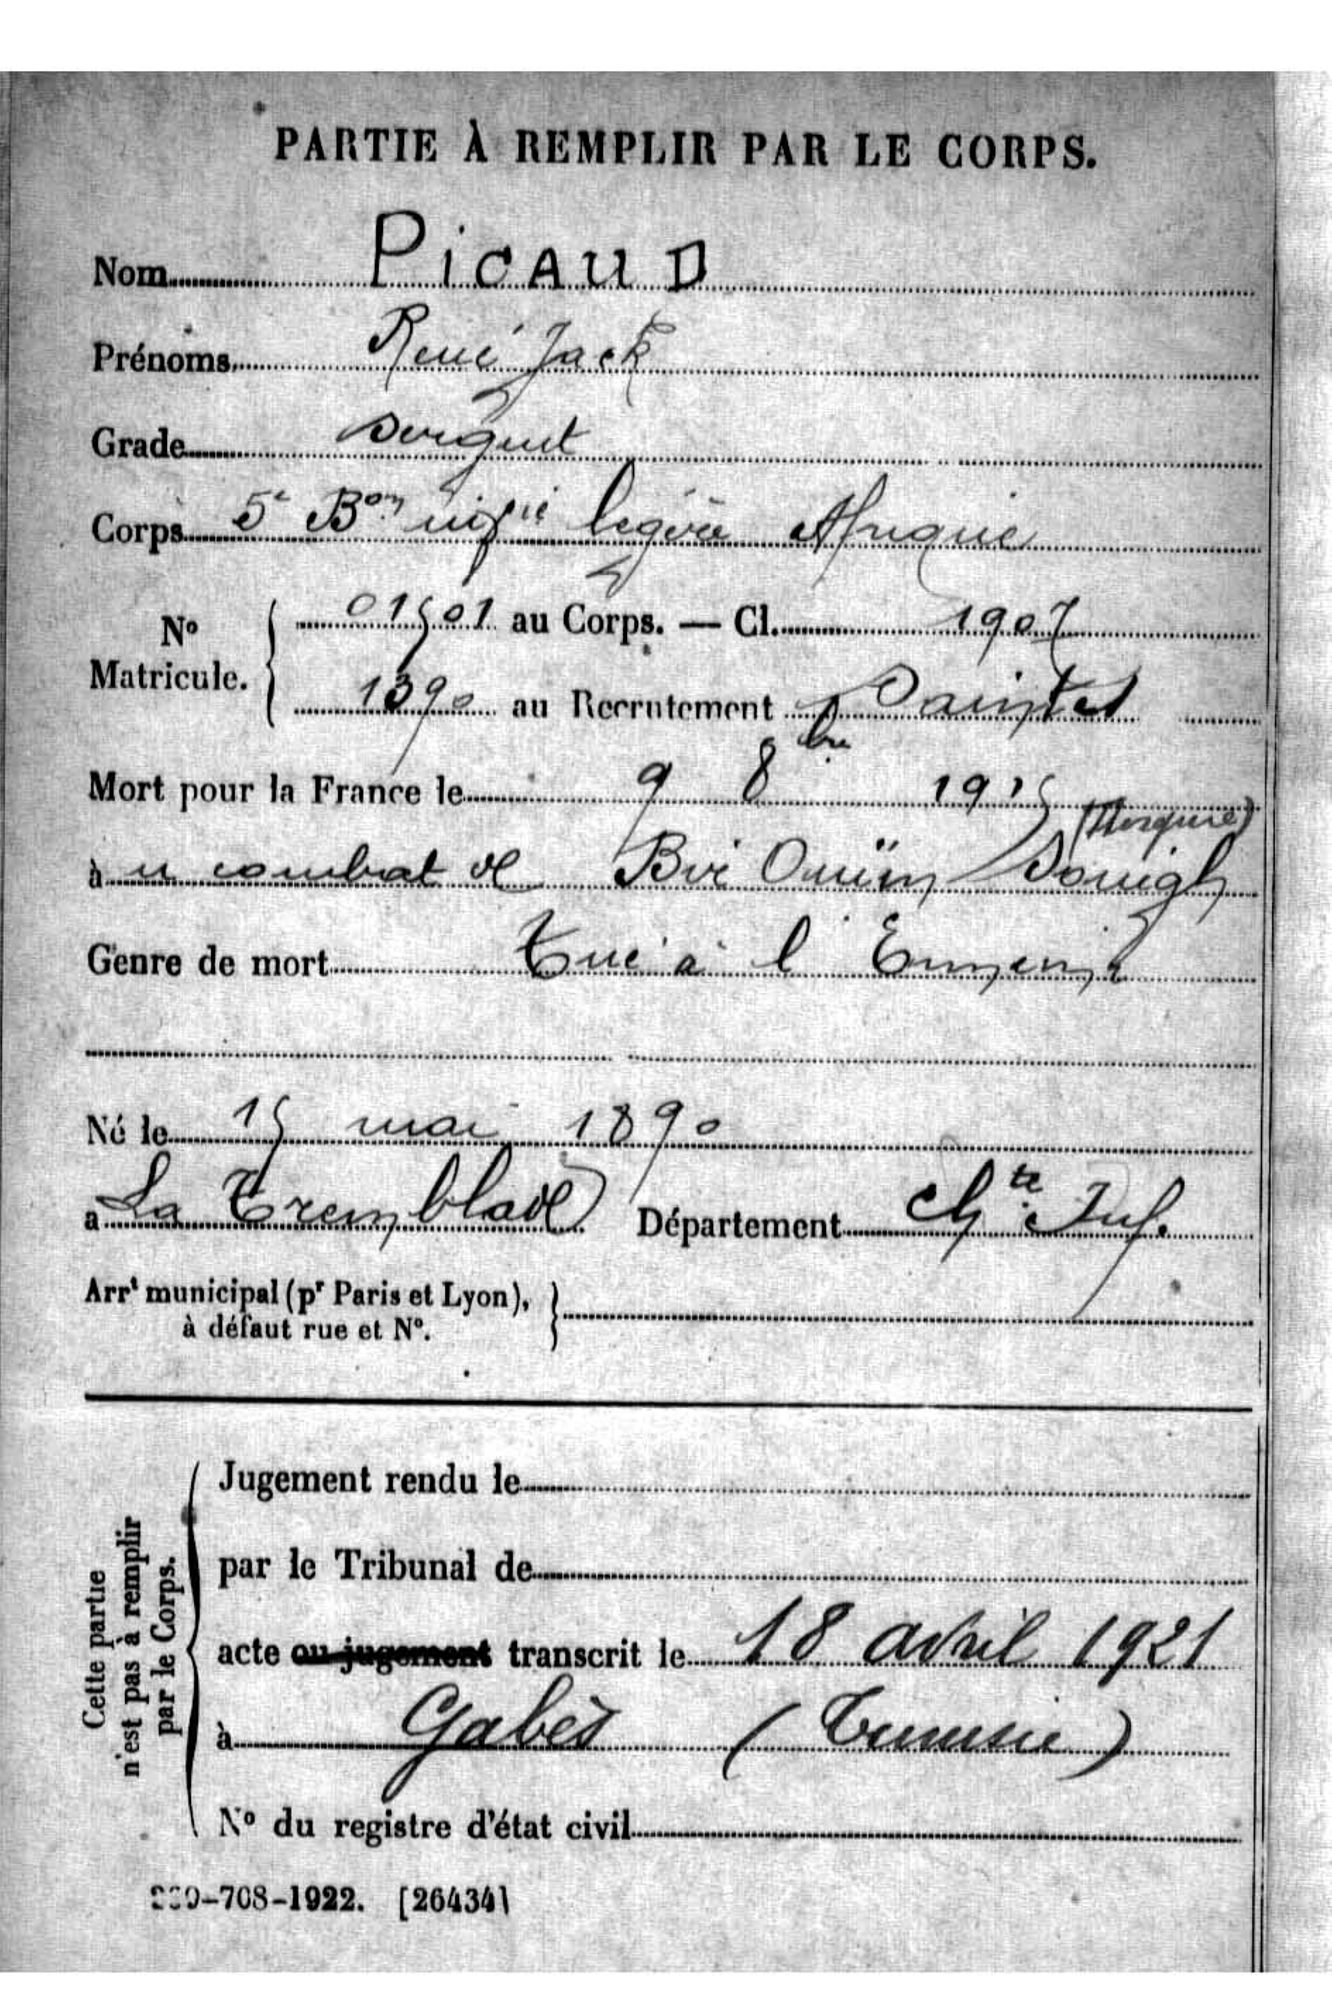 PARTIE À REMPLIR PAR LE CORPS.
Nom PICAUD
Prénoms René Jack
Grade Sergent
Corps 5e Bon inf ie légère Afrique
No Matricule. { 01501 au Corps. — Cl. 1907
1390 au Recrutement Saintes
Mort pour la France le 9 8bre 1915
à u combat de Bir Oum Souigh
Genre de mort Tué à l'Ennemi
Né le 15 mai 1890
a La Tremblade Département Chte Inf.
Arrt municipal (pr Paris et Lyon), }
à défaut rue et No.
Cette partie
n'est pas à remplir
par le Corps.
Jugement rendu le
par le Tribunal de
acte ou jugement transcrit le 18 avril 1921
à Gabès (Tunisie)
No du registre d'état civil
-708-1922. [26434]